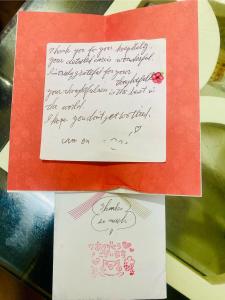 Thank you for your hospitality
your detailed is wonderful
I'm truly grateful for your
thoughtfulness
your thoughtfulness is the best in
the world.
I hope you don't get too tired.
Thanks
so much
ありがとう
ございます